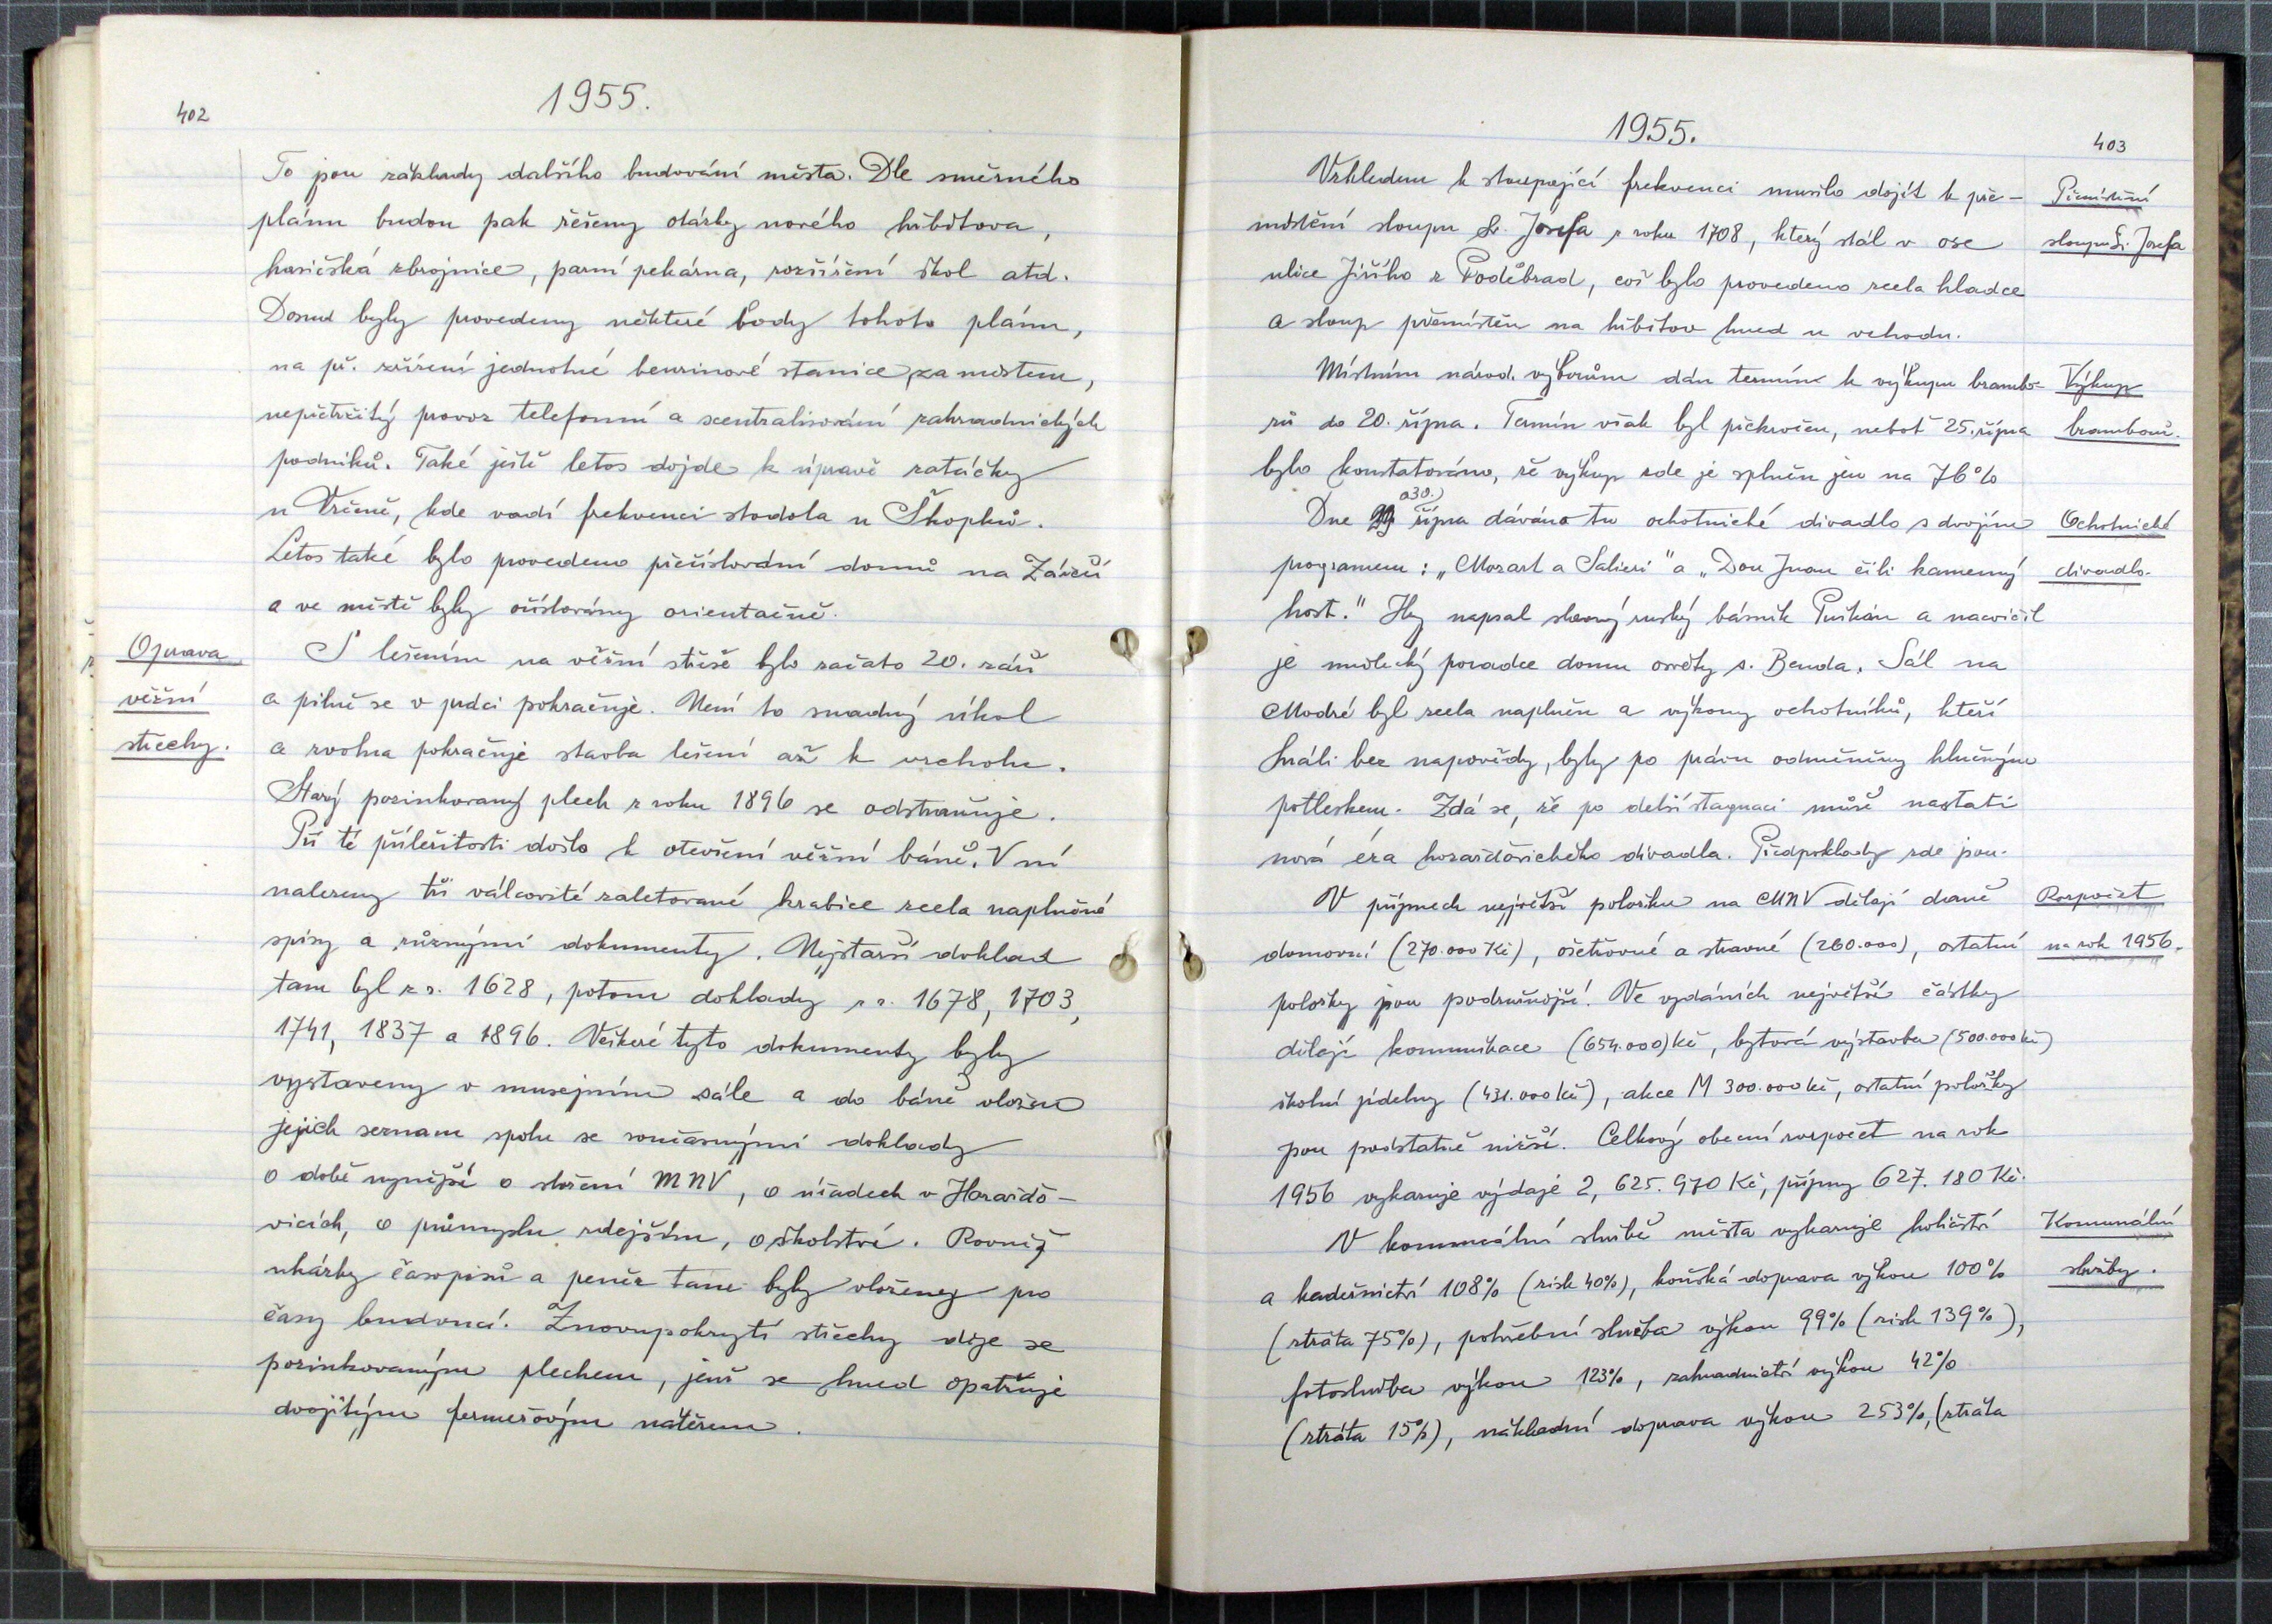 402
1955.
To jsou základy dalšího budování města. Dle směrného
plánu budou pak řešeny otázky nového hřbitova,
hasičská zbrojnice, parní pekárna, rozšíření škol atd.
Dosud byly provedeny některé body tohoto plánu,
na př. zřízení jednotné benzinové stanice za městem,
nepřetržitý provoz telefonní a scentralisování zahradnických
podniků. Také ještě letos dojde k úpravě zatáčky
u Vrčeně, kde vadí frekvenci stodola u Škopků.
Letos také bylo provedeno přečíslování domů na Zářečí
a ve městě byly očíslovány orientačně.
Oprava
věžní
střechy.
S lešením na věžní střeše bylo začato 20. září
a pilně se v práci pokračuje. Není to snadný úkol
a zvolna pokračuje stavba lešení až k vrcholu.
Starý pozinkovaný plech z roku 1896 se odstraňuje.
Při té příležitosti došlo k otevření věžní báně. V ní
nalezeny tři válcovité zaletované krabice zcela naplněné
spisy a různými dokumenty. Nejstarší doklad
tam byl z r. 1628, potom doklady z r. 1678, 1703,
1741, 1837 a 1896. Veškeré tyto dokumenty byly
vystaveny v musejním sále a do báně vložen
jejich seznam spolu se současnými doklady
o době nynější o složení MNV, o úřadech v Horažďo-
vicích, o průmyslu zdejším, o školství. Rovněž
ukázky časopisů a peněz tam byly vloženy pro
časy budoucí. Znovupokrytí střechy děje se
pozinkovaným plechem, jenž se hned opatřuje
dvojitým fermežovým nátěrem.
1955.
403
Vzhledem k stoupající frekvenci musilo dojít k pře-
místění sloupu Sv. Josefa z roku 1708, který stál v ose
ulice Jiřího z Poděbrad, což bylo provedeno zcela hladce
a sloup přemístěn na hřbitov hned u vchodu.
Přemístění
sloupu Sv. Josefa
Místním národ. výborům dán termín k výkupu brambo-
rů do 20. října. Termín však byl překročen, neboť 25. října
bylo konstatováno, že výkup zde je splněn jen na 76%
Výkup
bramborů.
a 30.
Dne 29 října dáváno tu ochotnické divadlo s dvojím
programem: „Mozart a Salieri" a „Don Juan čili kamenný
host." Hry napsal slavný ruský básník Puškin a nacvičil
je umělecký poradce domu osvěty s. Benda. Sál na
Modré byl zcela naplněn a výkony ochotníků, kteří
hráli bez napovědy, byly po právu odměněny hlučným
potleskem. Zdá se, že po delší stagnaci může nastati
nová éra horažďovického divadla. Předpoklady zde jsou.
Ochotnické
divadlo.
V příjmech největší položku na MNV dělají daně
domovní (270.000 Kč), ošetřovné a stravné (260.000), ostatní
položky jsou podružnější. Ve vydáních největší částky
dělají komunikace (654.000) Kč, bytová výstavba (500.000 Kč)
školní jídelny (431.000 Kč), akce M 300.000 Kč, ostatní položky
jsou podstatně nižší. Celkový obecní rozpočet na rok
1956 vykazuje výdaje 2, 625. 970 Kč, příjmy 627. 180 Kč.
Rozpočet
na rok 1956.
V komunální službě města vykazuje holičství
a kadeřnictví 108% (zisk 40%), koňská doprava výkon 100%
(ztráta 75%), pohřební služba výkon 99% (zisk 139%),
fotoslužba výkon 123%, zahradnictví výkon 42%
(ztráta 15%), nákladní doprava výkon 253%, (ztráta
Komunální
služby.